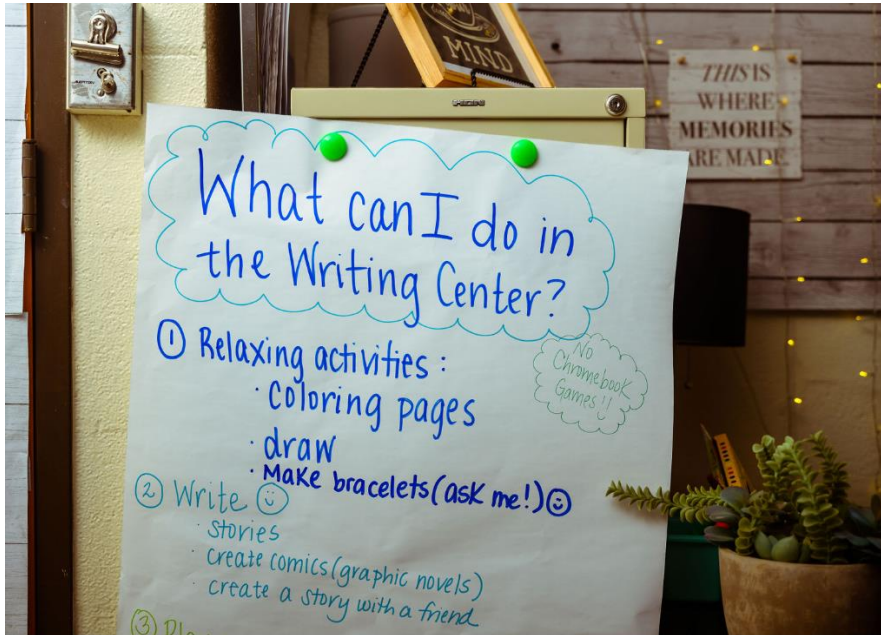 MIND
HON
THIS IS
WHERE
MEMORIES
ARE MADE
What can I do in
the Writing Center?
① Relaxing activities:
· Coloring pages
· draw
· Make bracelets (ask me!) ☺
No
Chromebook
Games!!
② Write ☺
· stories
· create comics (graphic novels)
· create a story with a friend
③